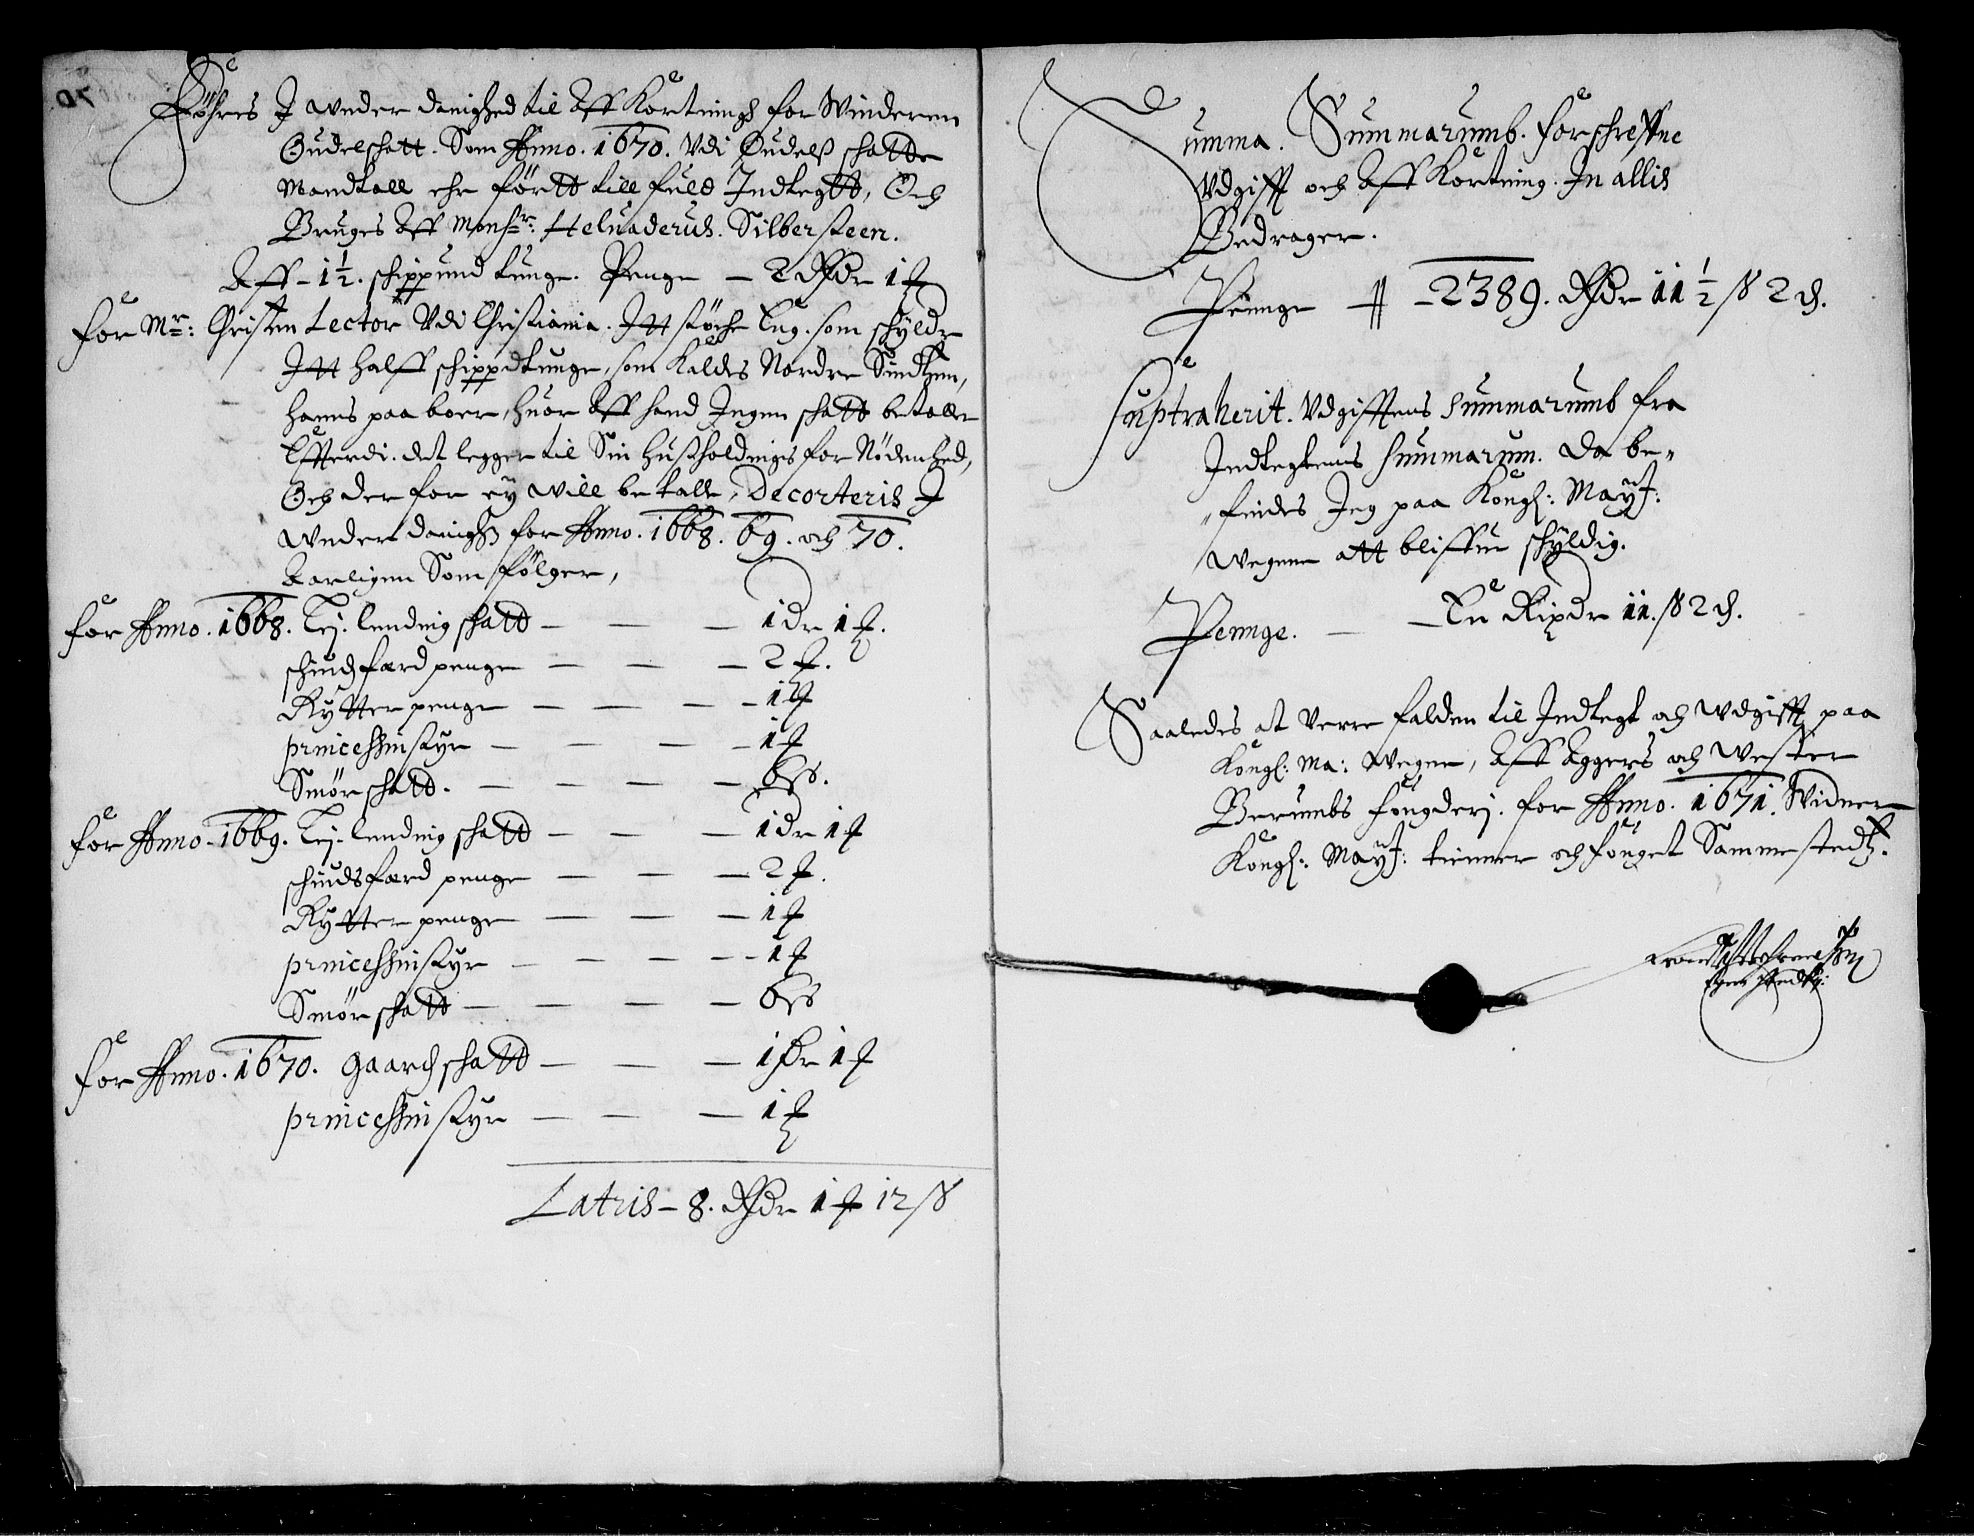 Føhres J under danighed til Aff Kortningh for Winderenn
Oudelschatt. Som Anno. 1670. Vdi Oudelß schatte
Mandtall ehr førtt till fuld Indtegtt, Och
Bruges Aff Monsr: Heluaderus. Silbersteen.
Aff - 1½. schippund tunge. Penge — 2 Rdr 1 ƒ
for Mr: Christen Lector Vdi Christiania. Itt støche Eng. som schylder
Itt halff schippdtunge, som kaldes Nordre Sundtzen,
hanns paa boer, huor Aff hand Ingen schatt betaller
Effterdi. det legger til Sin hußholdnings for Nødenhed,
Och der for ey will betalle, Decorteris J
under danigst for Anno. 1668. 69. och 70.
Aarligen Som følger,
for Anno. 1668. Lej. lending schatt — — — 1 dr 1 ƒ.
schindfærd penge — — — 2 ƒ.
Rytter penge — — — 1 ƒ
princessinstyr — — — 1 ƒ
Smør schatt. — — — 6 ß.
for Anno. 1669. Lej. lending schatt — — — 1 dr 1 ƒ
schindsfærd penge — — — 2 ƒ.
Rytter penge — — — 1 ƒ
princessinstyr — — — 1 ƒ
Smør schatt — — — 6 ß
for Anno. 1670. gaardschatt — — — 1 dr 1 ƒ
princessinstyr — — — 1 ƒ
Latris - 8. Rdr 1 ƒ 12 ß
Summa. Summarumb. forschreffne
Vdgifft och Aff Kortning. In allis
Bedrager.
Penge — 2389. Rdr 11½ ß 2 d.
Suptraherit. Vdgifftens Summarumb fra
Indtegtens Summarum. da be„
„findes Jeg paa Kongl: Mayt:
wegnne att bliffue schyldig.
Pennge. — En Rixdr 11. ß 2 d.
Saaledes at verre falden til Indtegt och Wdgifft paa
Kongl: Ma: Wegne, Aff Aggers och Wester
Berumbs fougderj. for Anno. 1671. Widner
Kongl: Mayt: tienner och fouget Sammestedtz.